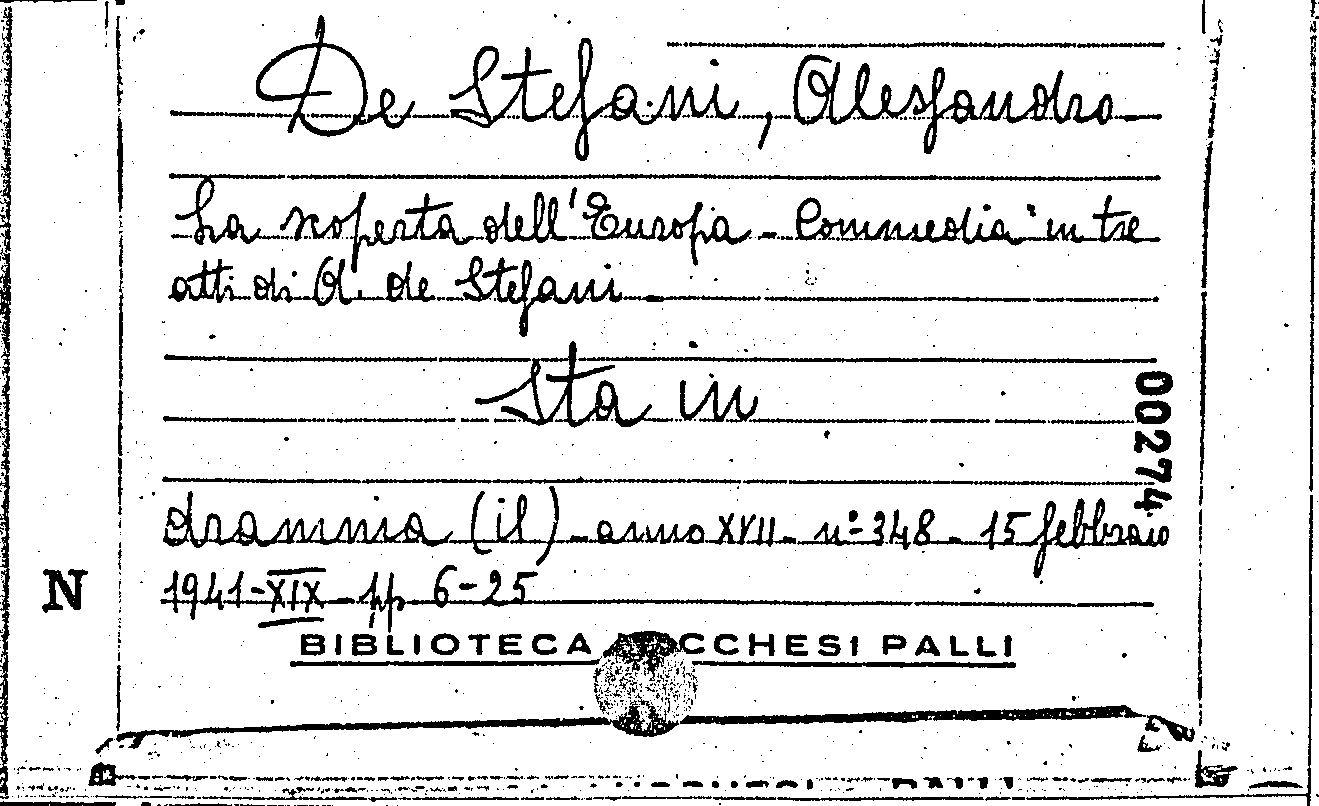 De Stefani, Alessandro
La scoperta dell'Europa - Commedia in tre
atti di A. de Stefani -
Sta in
dramma (il) - anno XVII - n° 348 - 15 febbraio
1941 - XIX - pp 6-25
00274
N
BIBLIOTECA LUCCHESI PALLI